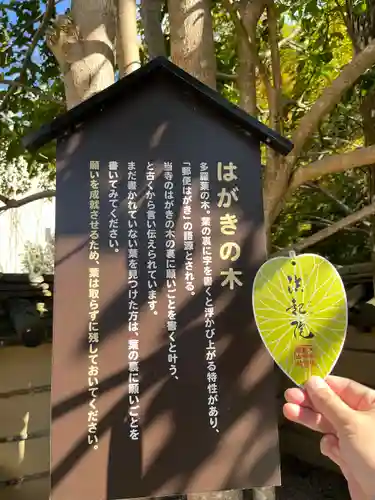 はがきの木
多羅葉の木。葉の裏に字を書くと浮かび上がる特性があり、
「郵便はがき」の語源とされる。
当寺のはがきの木の葉の裏に願いごとを書くと叶う、
と古くから言い伝えられています。
まだ書かれていない葉を見つけた方は、葉の裏に願いごとを
書いてみてください。
願いを成就させるため、葉は取らずに残しておいてください。
法記院